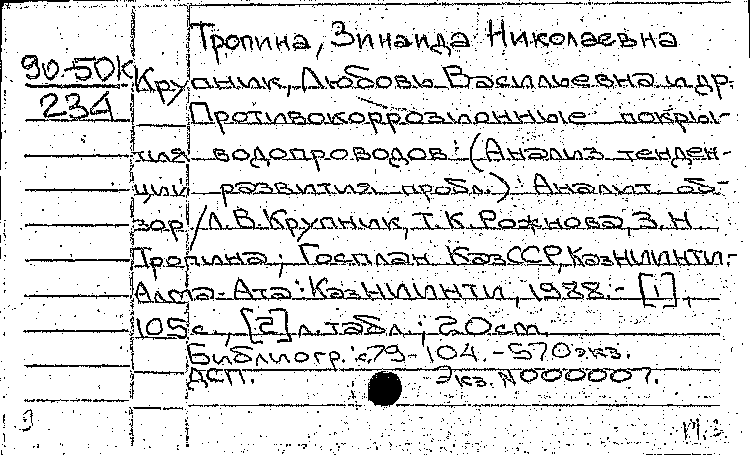 Тропина, Зинаида Николаевна
90-50К
234
Крупник, Любовь Васильевна и др.
Противокоррозионные покры-
тия водопроводов: (Анализ тенден-
ций развития пробл.): Аналит. об-
зор / Л.В. Крупник, Т.К. Рожнова, З.Н.
Тропина; Госплан КазССР, КазНИИНТИ.-
Алма-Ата: КазНИИНТИ, 1988.- [1],
105 с., [2] л. табл.; 20 cm.
Библиогр.: с 79-104.- 570 экз.
ДСП. Экз. N 000007.